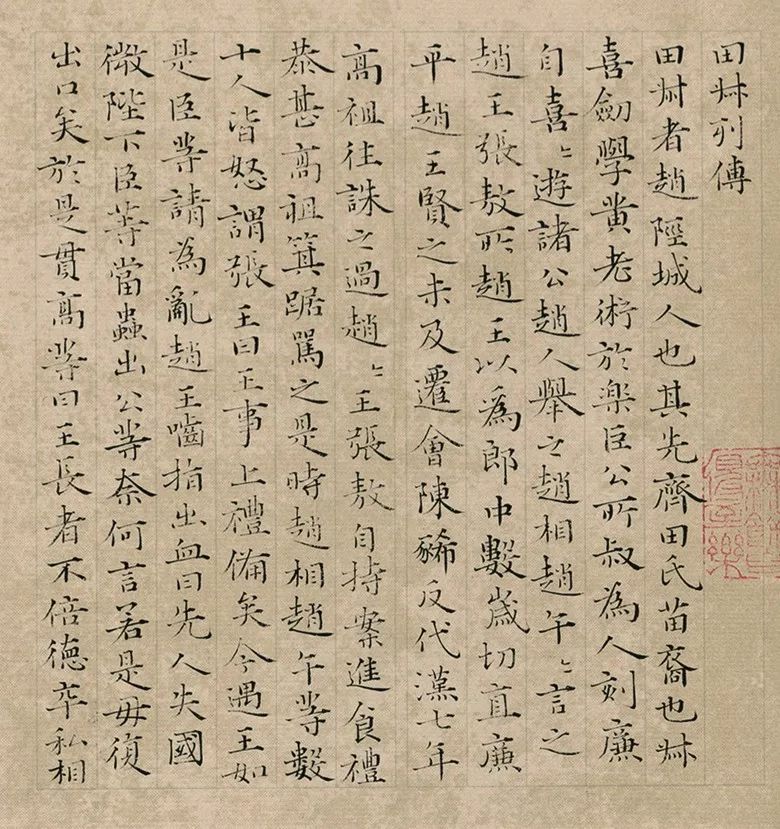 田叔列傳
田叔者趙陘城人也其先齊田氏苗裔也叔
喜劍學黄老術於樂臣公所叔為人刻廉
自喜〻遊諸公趙人舉之趙相趙午〻言之
趙王張敖所趙王以為郎中數歲切直廉
平趙王賢之未及遷會陳豨反代漢七年
高祖往誅之過趙〻王張敖自持案進食禮
恭甚高祖箕踞罵之是時趙相趙午等數
十人皆怒謂張王曰王事上禮備矣今遇王如
是臣等請為亂趙王嚙指出血曰先人失國
微陛下臣等當蟲出公等奈何言若是毋復
出口矣於是貫高等曰王長者不倍德卒私相